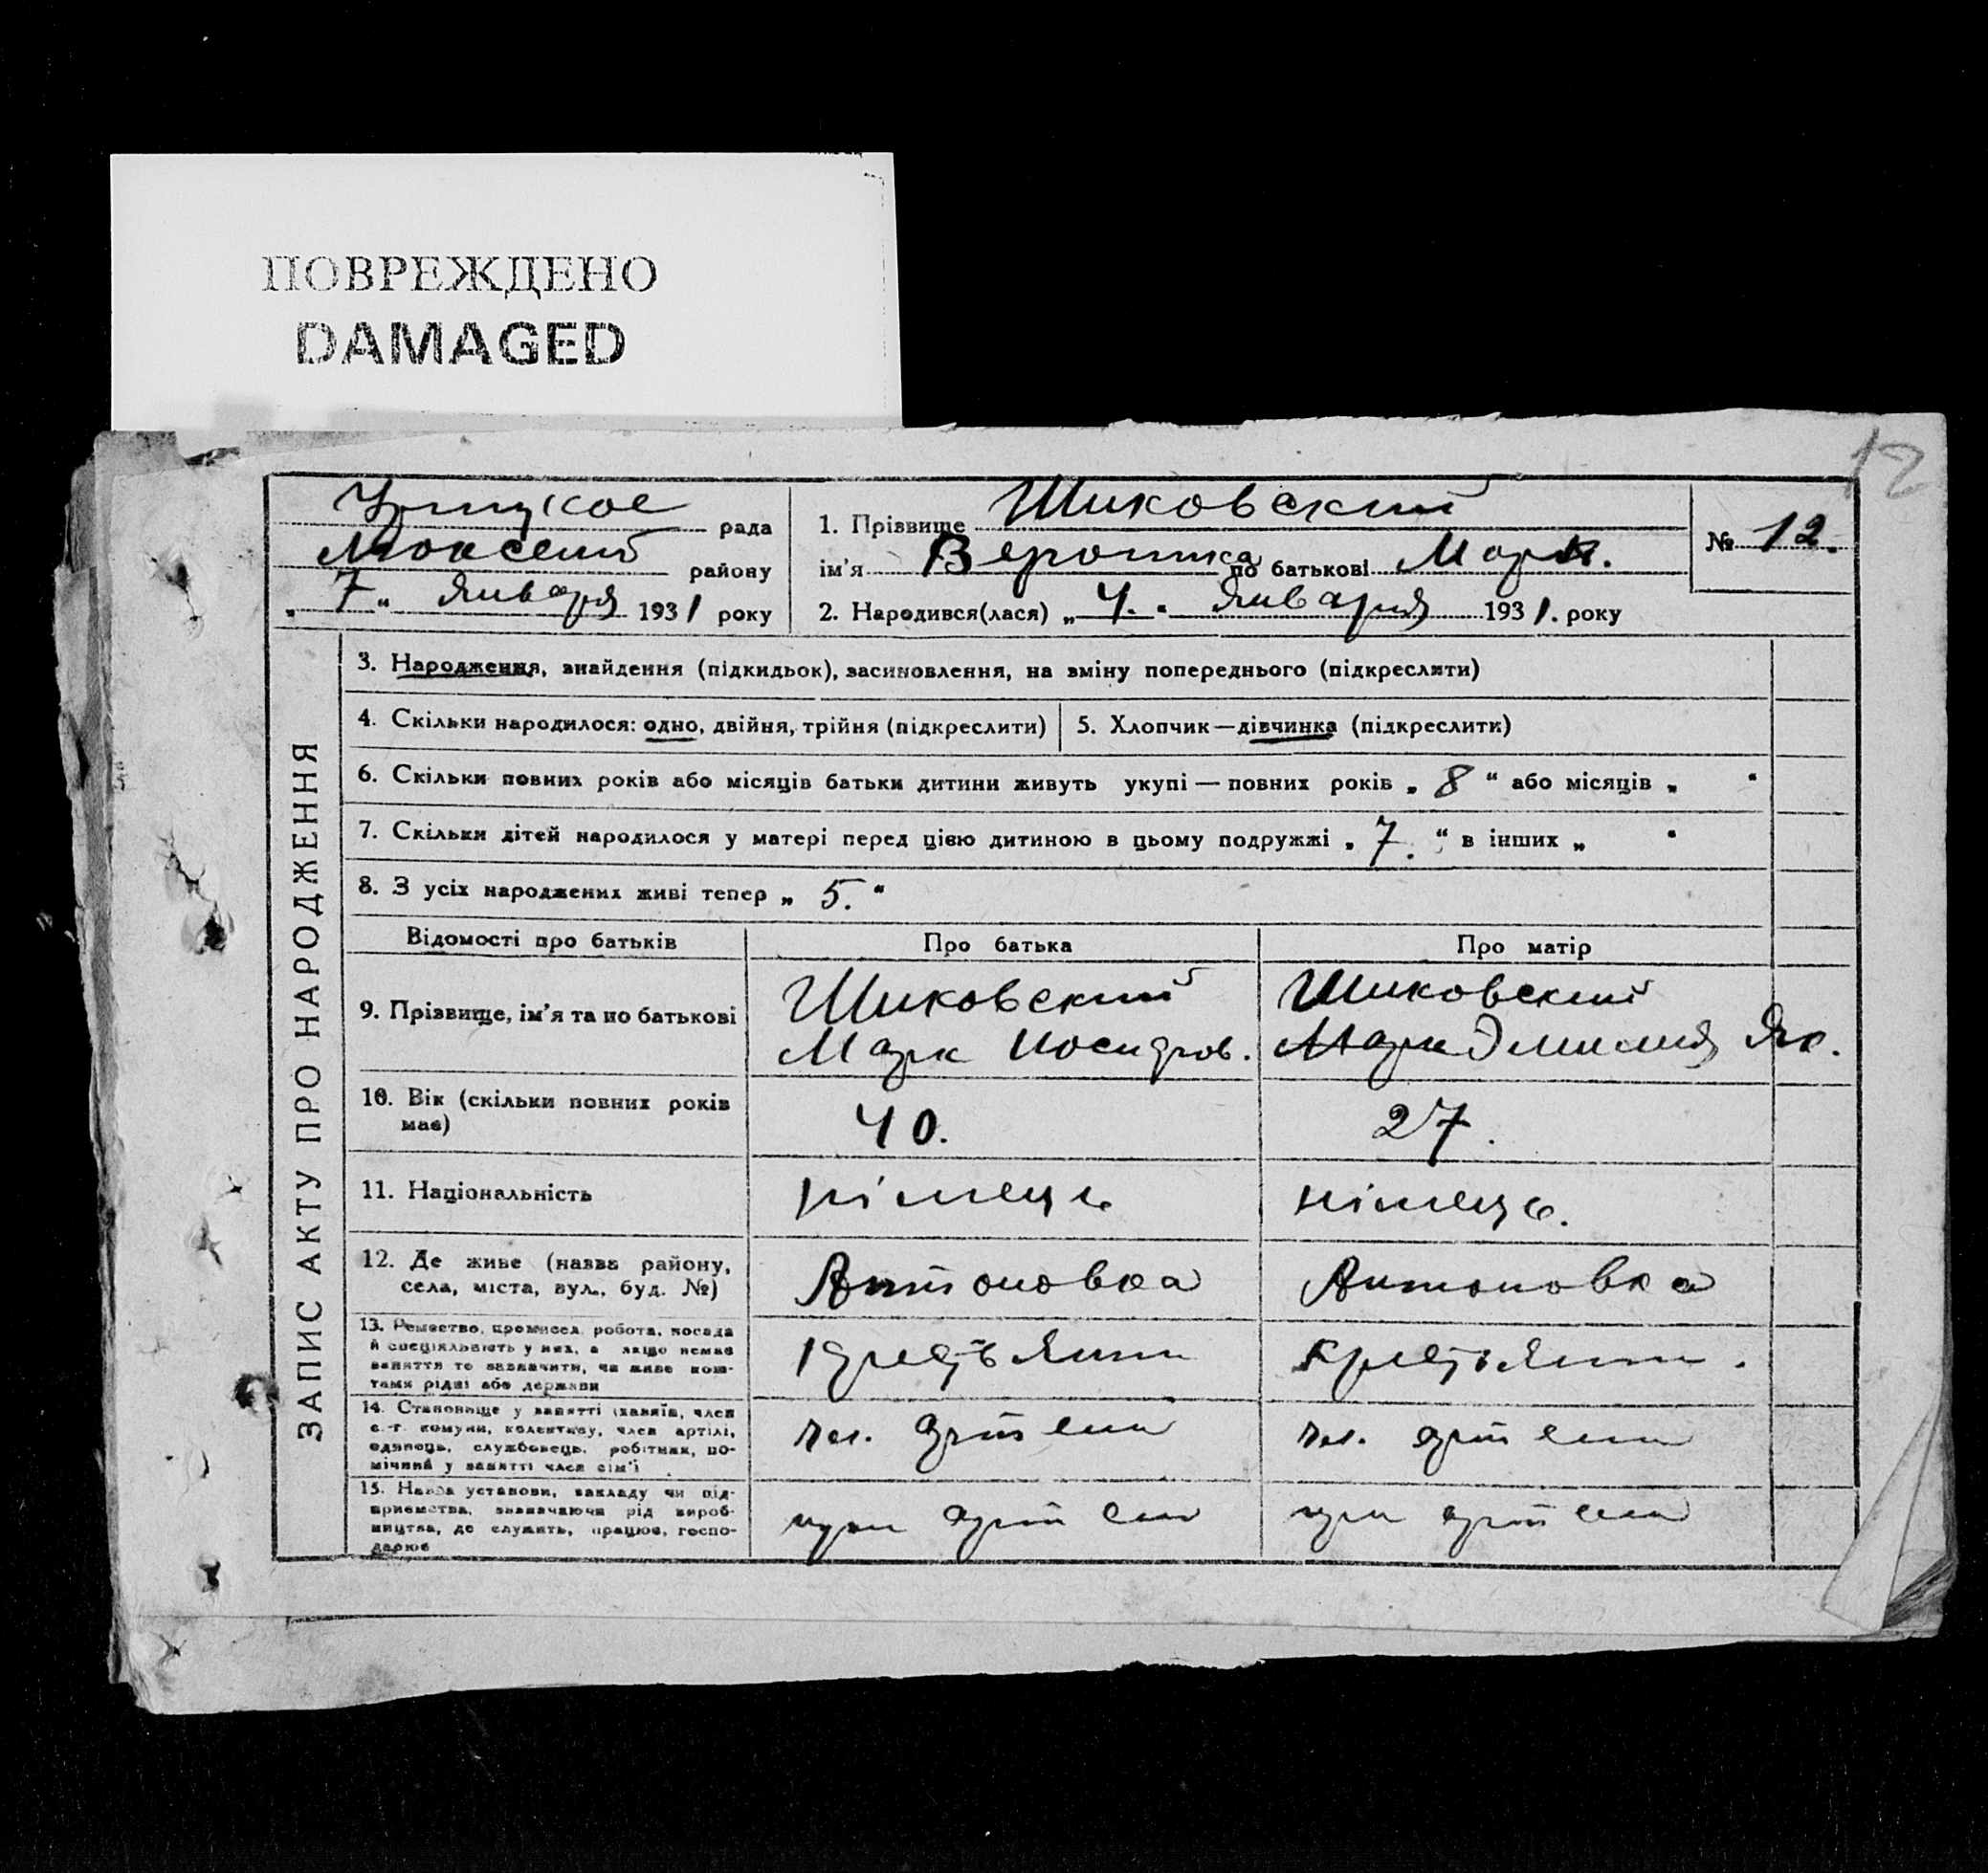 ПОВРЕЖДЕНО
DAMAGED
12
рада
району
„ 7 “ Января 1931 року
1. Прізвище Шиковский
ім’я Вероника по батькові Марк.
2. Народився(лася) „ 4. “ Января 1931. року
№ 12.
ЗАПИС АКТУ ПРО НАРОДЖЕННЯ
3. Народження, знайдення (підкидьок), засиновлення, на зміну попереднього (підкреслити)
4. Скільки народилося: одно, двійня, трійня (підкреслити)
5. Хлопчик—дівчинка (підкреслити)
6. Скільки повних років або місяців батьки дитини живуть укупі — повних років „ 8 “ або місяців „ “
7. Скільки дітей народилося у матері перед цією дитиною в цьому подружжі „ 7. “ в інших „ “
8. З усіх народжених живі тепер „ 5. “
Відомості про батьків
Про батька
Про матір
9. Прізвище, ім’я та по батькові
Шиковский
Марк
Шиковский
Марк Эмилия Як.
10. Вік (скільки повних років
має)
40.
27.
11. Національність
німець
німець.
12. Де живе (назва району,
села, міста, вул., буд. №)
Антоновка
Антоновка
13. Ремество, промисел, робота, посада
й спеціяльність у них, а якщо немає
заняття то зазначити, чи живе кош-
тами рідні або держави
14. Становище у занятті (хазяїн, член
с.-г. комуни, колективу, член артілі,
одинець, службовець, робітник, по-
мічний у занятті член сім’ї
чл. артели
чл. артели
15. Назва установи, закладу чи під-
приємства, зазначаючи рід вироб-
ництва, де служить, працює, госпо-
дарює
при артели
при артели